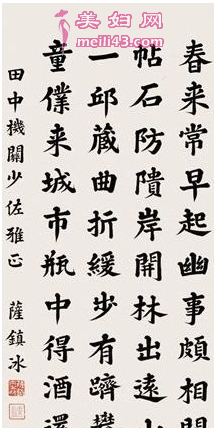 美妇网
meili43.com
春来常早起幽事頗相關
帖石防隤岸開林出遠山
一邱蔵曲折緩步有躋攀
童僕来城市瓶中得酒還
田中機關少佐雅正
薩鎮冰